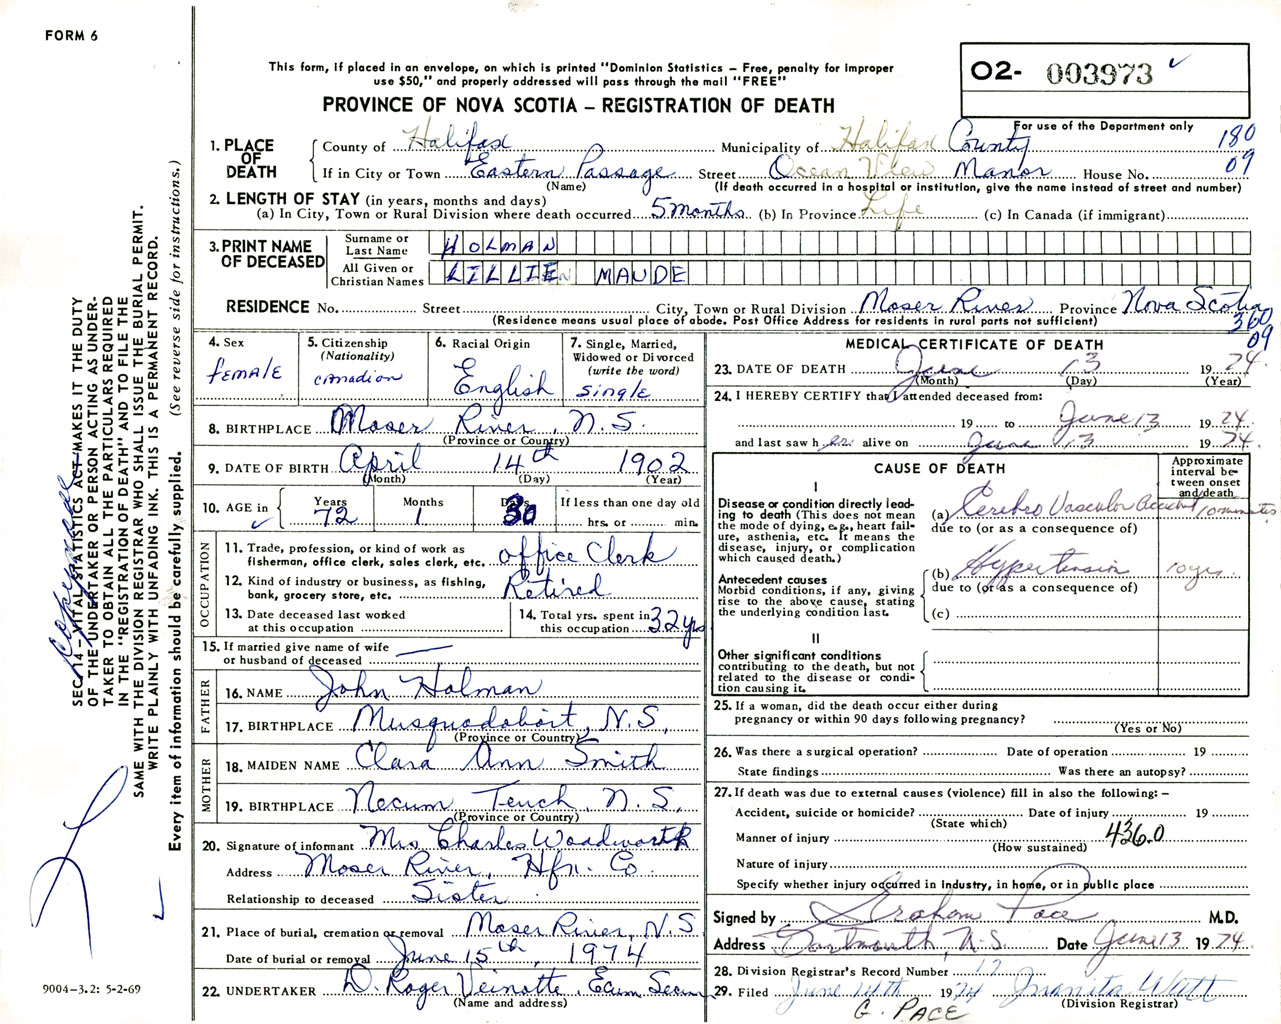 FORM 6
This form, if placed in an envelope, on which is printed "Dominion Statistics – Free, penalty for improper
use $50," and properly addressed will pass through the mail "FREE"
PROVINCE OF NOVA SCOTIA – REGISTRATION OF DEATH
02- 003973
For use of the Department only
180
09
1. PLACE OF DEATH
County of Halifax Municipality of Halifax County
If in City or Town Eastern Passage Street Ocean View Manor House No.
(Name) (If death occurred in a hospital or institution, give the name instead of street and number)
2. LENGTH OF STAY (in years, months and days)
(a) In City, Town or Rural Division where death occurred 5 months (b) In Province Life (c) In Canada (if immigrant)
3. PRINT NAME OF DECEASED
Surname or Last Name HOLMAN
All Given or Christian Names LILLIEN MAUDE
RESIDENCE No. Street City, Town or Rural Division Moser River Province Nova Scotia
(Residence means usual place of abode. Post Office Address for residents in rural parts not sufficient)
360
09
4. Sex female
5. Citizenship (Nationality) canadian
6. Racial Origin English
7. Single, Married, Widowed or Divorced (write the word) single
8. BIRTHPLACE Moser River, N.S.
(Province or Country)
9. DATE OF BIRTH April 14th 1902
(Month) (Day) (Year)
10. AGE in Years 72 Months 1 Days 30
If less than one day old
hrs. or min.
OCCUPATION
11. Trade, profession, or kind of work as
fisherman, office clerk, sales clerk, etc. office Clerk
12. Kind of industry or business, as fishing,
bank, grocery store, etc. Retired
13. Date deceased last worked
at this occupation
14. Total yrs. spent in
this occupation 32 yrs
15. If married give name of wife
or husband of deceased
FATHER
16. NAME John Holman
17. BIRTHPLACE Musquodoboit, N.S.
(Province or Country)
MOTHER
18. MAIDEN NAME Clara Ann Smith
19. BIRTHPLACE Necum Teuch, N.S.
(Province or Country)
20. Signature of informant Mrs Charles Woodworth
Address Moser River, Hfx. Co
Relationship to deceased Sister
21. Place of burial, cremation or removal Moser River, N.S
Date of burial or removal June 15th, 1974
22. UNDERTAKER D. Roger Veinotte, Ecum Secum
(Name and address)
MEDICAL CERTIFICATE OF DEATH
23. DATE OF DEATH June 13 1974
(Month) (Day) (Year)
24. I HEREBY CERTIFY that I attended deceased from:
19 to June 13 1974
and last saw her alive on June 13 1974
CAUSE OF DEATH
Approximate
interval be-
tween onset
and death
I
Disease or condition directly lead-
ing to death (This does not
mean the mode of dying, e.g., heart fail-
ure, asthenia, etc. It means the
disease, injury, or complication
which caused death.)
(a) Cerebro Vascular Accident 10 minutes
due to (or as a consequence of)
Antecedent causes
Morbid conditions, if any, giving
rise to the above cause, stating
the underlying condition last.
(b) Hypertension 10 yrs.
due to (or as a consequence of)
(c)
II
Other significant conditions
contributing to the death, but not
related to the disease or condi-
tion causing it.
25. If a woman, did the death occur either during
pregnancy or within 90 days following pregnancy?
(Yes or No)
26. Was there a surgical operation? Date of operation 19
State findings Was there an autopsy?
27. If death was due to external causes (violence) fill in also the following: –
Accident, suicide or homicide? Date of injury 19
(State which)
Manner of injury 436.0
(How sustained)
Nature of injury
Specify whether injury occurred in industry, in home, or in public place
Signed by Graham Pace M.D.
Address Dartmouth, N.S. Date June 13 1974
28. Division Registrar's Record Number 17
29. Filed June 14th 1974 Juanita Watt
(Division Registrar)
G. PACE
SEC. 14 – VITAL STATISTICS ACT MAKES IT THE DUTY
OF THE UNDERTAKER OR PERSON ACTING AS UNDER-
TAKER TO OBTAIN ALL THE PARTICULARS REQUIRED
IN THE "REGISTRATION OF DEATH" AND TO FILE THE
SAME WITH THE DIVISION REGISTRAR WHO SHALL ISSUE THE BURIAL PERMIT.
WRITE PLAINLY WITH UNFADING INK. THIS IS A PERMANENT RECORD.
Every item of information should be carefully supplied. (See reverse side for instructions.)
9004-3.2: 5-2-69